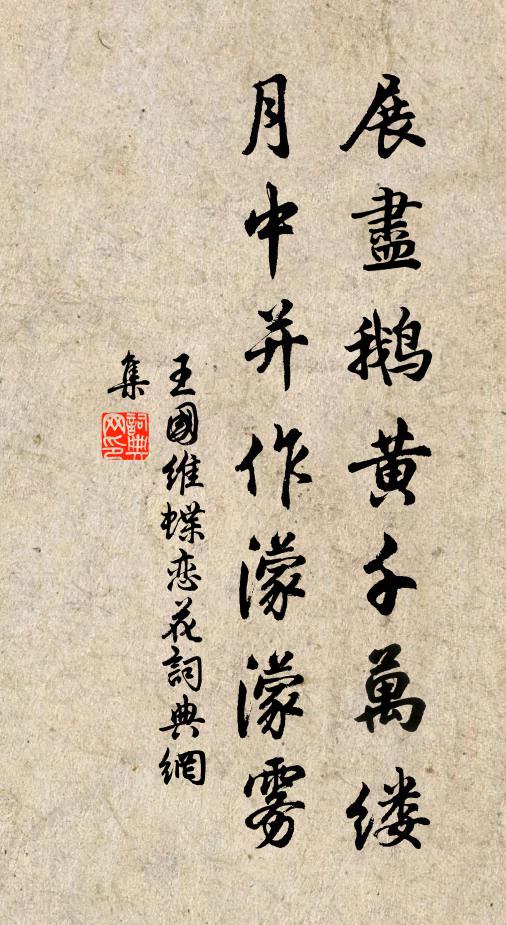 展盡鵝黄千萬缕
月中并作濛濛雾
王國维蝶恋花詞典網
集
詞典网印